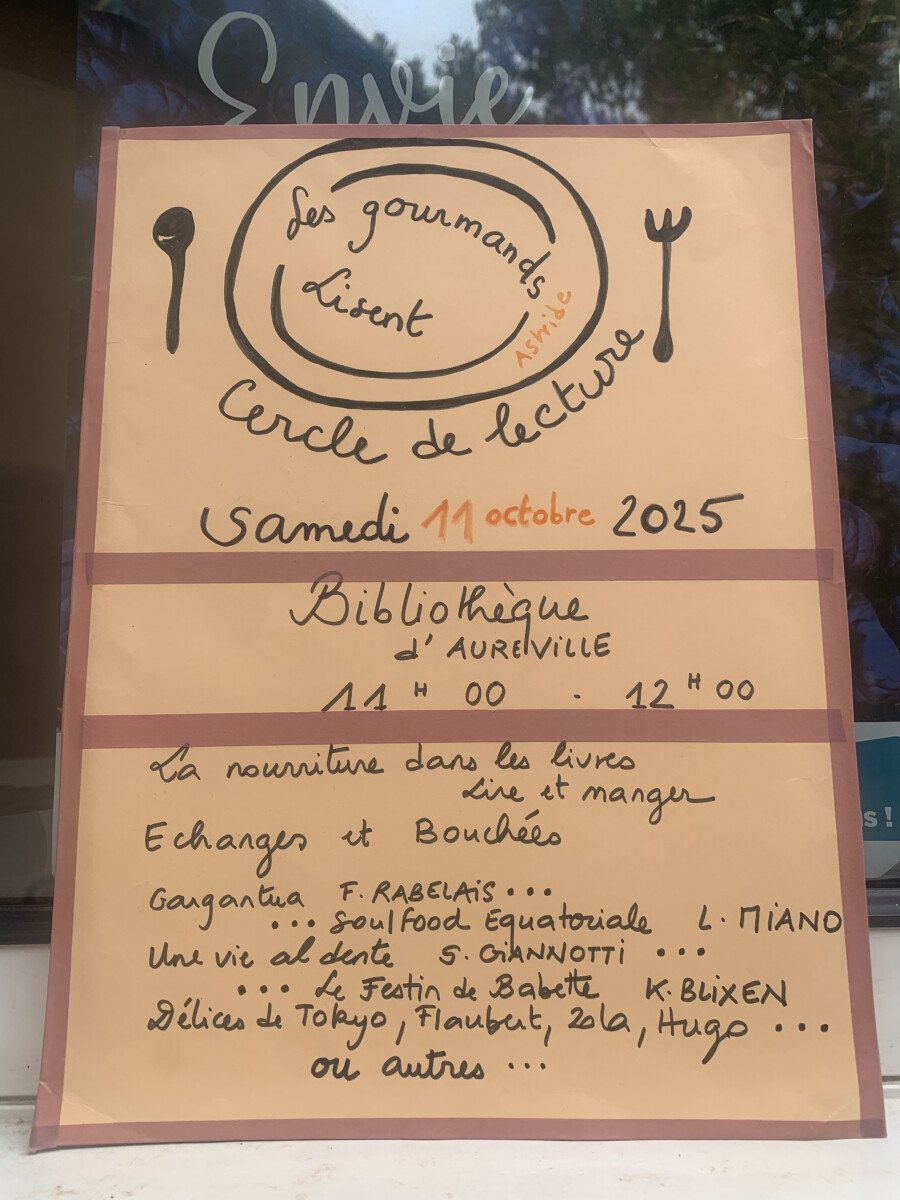 Envie
Les gourmands
Lisent
Astride
Cercle de lecture
Samedi 11 octobre 2025
Bibliothèque
d'AUREVILLE
11 H 00 . 12 H 00
La nourriture dans les livres
Lire et manger
Echanges et Bouchées
Gargantua F. RABELAIS...
... Soulfood Equatoriale L. MIANO
Une vie al dente S. GIANNOTTI ...
... Le Festin de Babette K. BLIXEN
Délices de Tokyo, Flaubert, Zola, Hugo ...
ou autres ...
s !